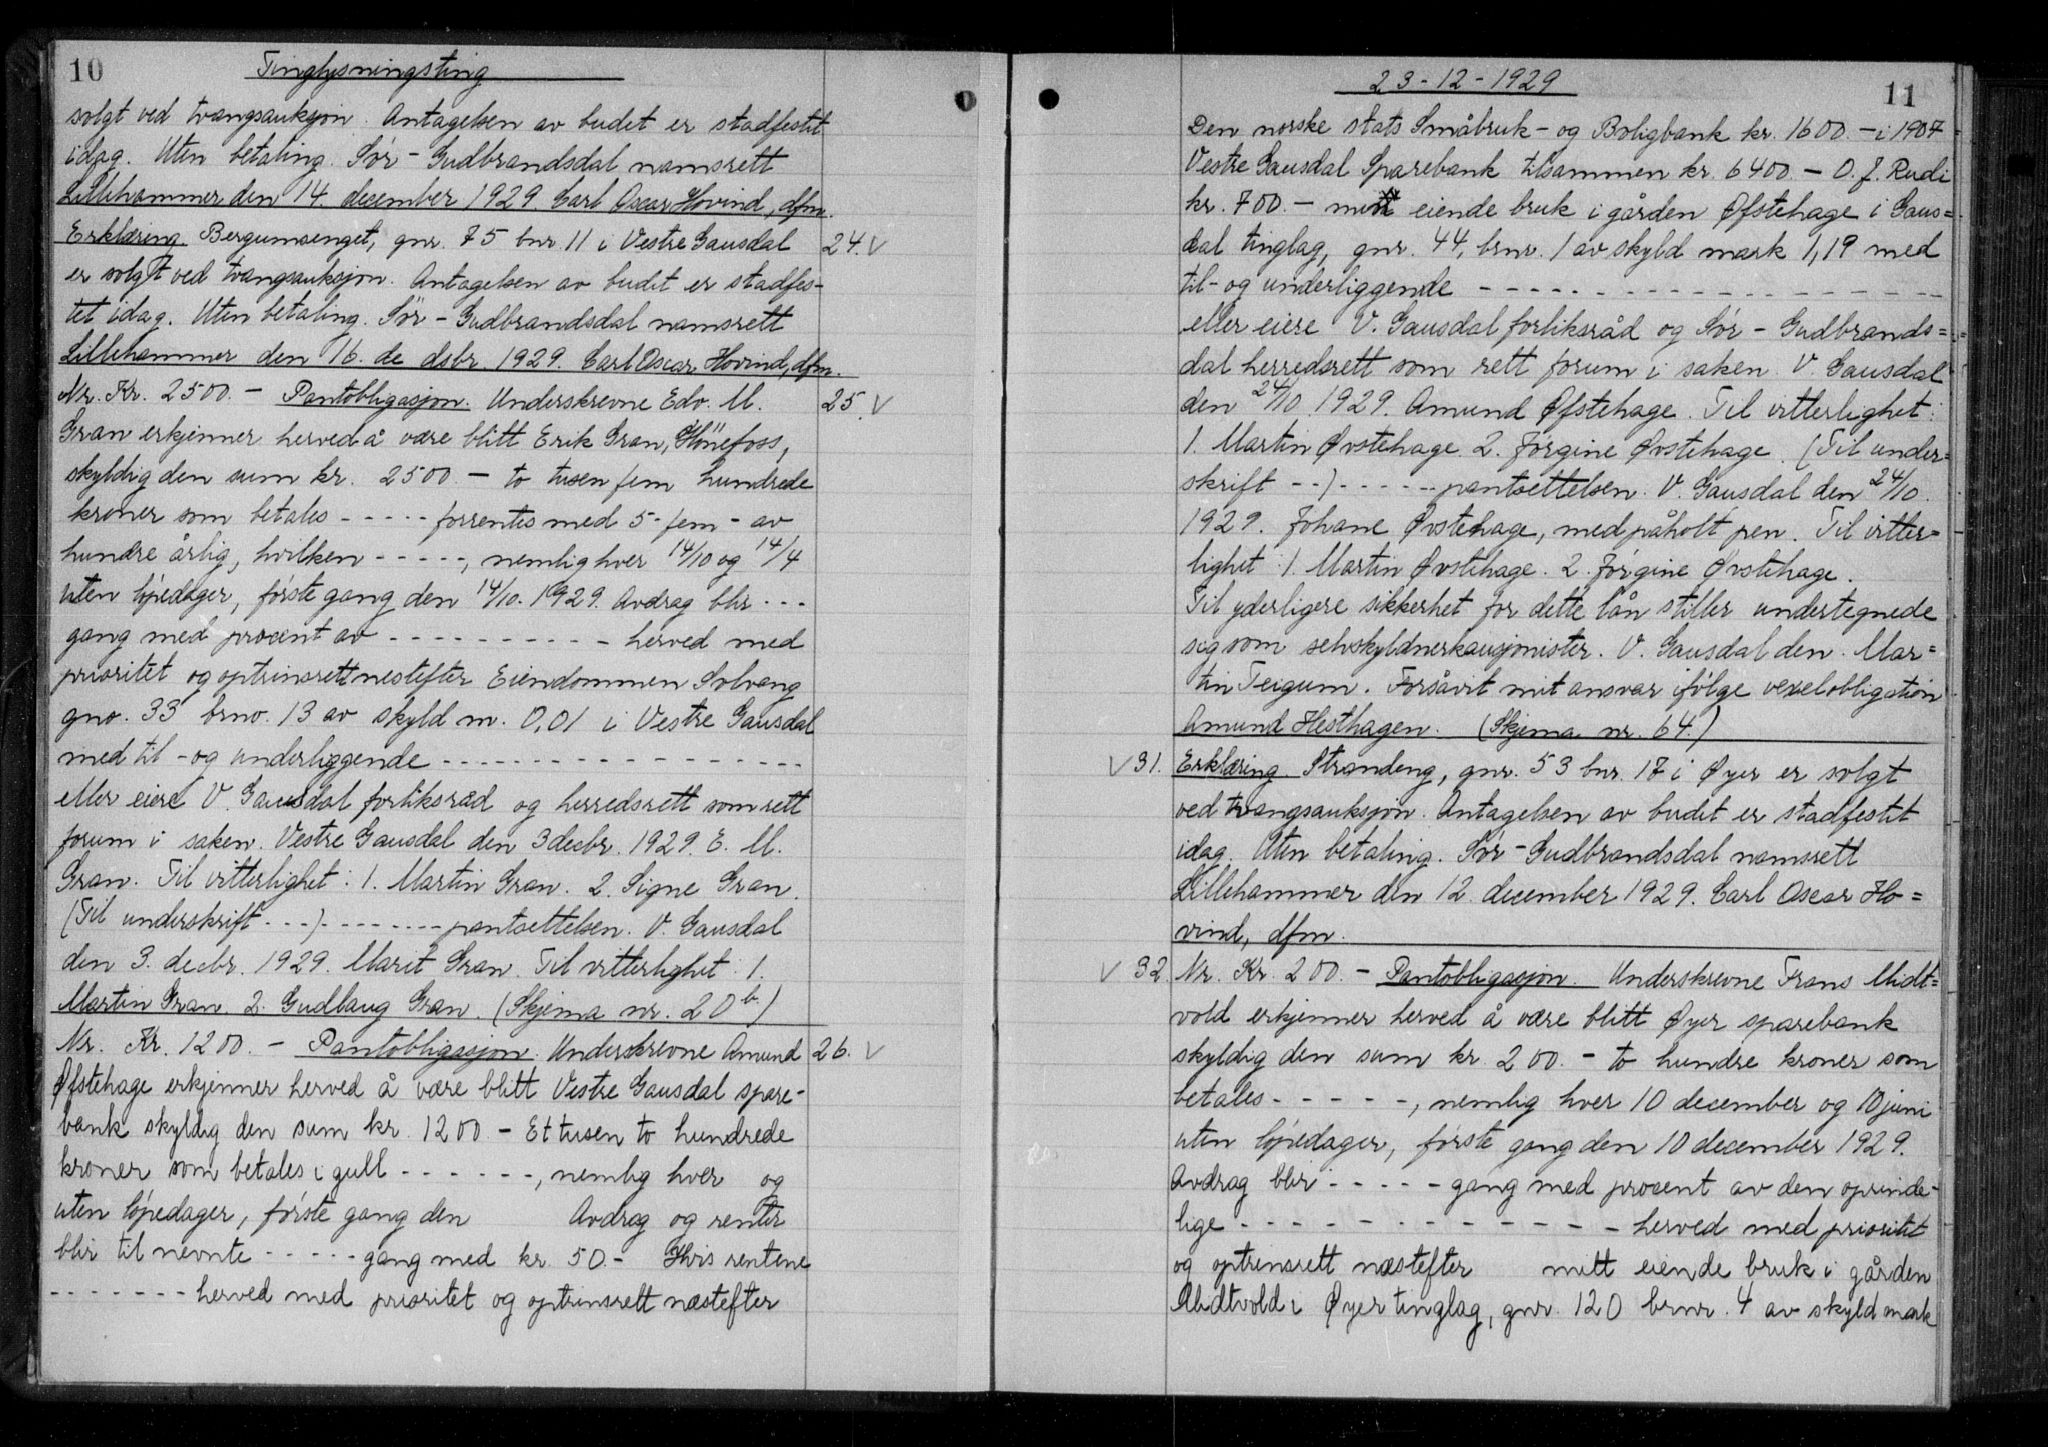 10 Tinglysningsting
solgt ved tvangsauksjon. Antagelsen av budet er stadfestet
idag. Uten betaling. Sör-Gudbrandsdal namsrett
Lillehammer den 14. december 1929. Carl Oscar Hovind, dfm.
Erklæring. Bergumsenget, gnr. 75 bnr. 11 i Vestre Gausdal 24. V
er solgt ved tvangsauksjon. Antagelsen av budet er stadfes-
tet idag. Uten betaling. Sör-Gudbrandsdal namsrett
Lillehammer den 16. de dsbr. 1929. Carl Oscar Hovind, dfm.
Nr. Kr. 2500.- Pantobligasjon. Underskrevne Edv. M. 25. V
Gran erkjenner herved å være blitt Erik Gran, Hönefoss,
skyldig den sum kr. 2500.- to tusen fem hundrede
kroner som betales - - - - - forrentes med 5- fem - av
hundre årlig, hvilken - - - - -, nemlig hver 14/10 og 14/4
uten löpedager, förste gang den 14/10. 1929. Avdrag blir - - -
gang med procent av - - - - - - - - - - herved med
prioritet og optrinsrett nestefter Eiendommen Solvang
gno. 33 brno. 13 av skyld m. 0,01 i Vestre Gausdal
med til- og underliggende - - - - - - - - - - - - - - - -
eller eiere V. Gausdal forliksråd og herredsrett som rett
forum i saken. Vestre Gausdal den 3 decbr. 1929. E. M.
Gran. Til vitterlighet: 1. Martin Gran. 2. Signe Gran.
(Til underskrift - - -) - - - - - - - - pantsettelsen. V. Gausdal
den 3. decbr. 1929. Marit Gran. Til vitterlighet: 1.
Martin Gran. 2. Gudlaug Gran. (Skjema nr. 20 b.)
Nr. Kr. 1200.- Pantobligasjon. Underskrevne Amund 26. V
Øfstehage erkjenner herved å være blitt Vestre Gausdal spare-
bank skyldig den sum kr. 1200.- Et tusen to hundrede
kroner som betales i gull - - - - - -, nemlig hver og
uten löpedager, förste gang den Avdrag og renter
blir til nevnte - - - - - gang med kr. 50.- Hvis rentene
- - - - - - - herved med prioritet og optrinsrett næstefter
23-12-1929 11
Den norske stats Småbruk- og Boligbank kr. 1600.- i 1907
Vestre Gausdal Sparebank tilsammen kr. 6400.- O. J. Rudi
kr. 700.- mitt eiende bruk i gården Øfstehage i Gaus=
dal tinglag, gnr. 44, brnr. 1 av skyld mark 1,19 med
til- og underliggende - - - - - - - - - - - - - - - - - -
eller eiere V. Gausdal forliksråd og Sör-Gudbrands=
dal herredsrett som rett forum i saken. V. Gausdal
den 24/10. 1929. Amund Øfstehage. Til vitterlighet:
1. Martin Øvstehage. 2. Jörgine Øvstehage. (Til under=
skrift - -) - - - - - pantsettelsen. V. Gausdal den 24/10.
1929. Johane Øvstehage, med påholt pen. Til vitter=
lighet: 1. Martin Øvstehage. 2. Jörgine Øvstehage.
Til yderligere sikkerhet for dette lån stiller undertegnede
sig som selvskyldnerkausjonister. V. Gausdal den. Mar=
tin Teigum. Forsåvit mit ansvar ifölge vexelobligation
Amund Hesthagen. (Skjema nr. 64.)
V 31. Erklæring. Strandeng, gnr. 53 bnr. 17 i Øyer er solgt
ved tvangsauksjon. Antagelsen av budet er stadfestet
idag. Uten betaling. Sör-Gudbrandsdal namsrett
Lillehammer den 12. december 1929. Carl Oscar Ho=
vind, dfm.
V 32. Nr. Kr. 200.- Pantobligasjon. Underskrevne Frans Midt=
vold erkjenner herved å være blitt Øyer sparebank
skyldig den sum kr. 200.- to hundre kroner som
betales - - - - -, nemlig hver 10 december og 10 juni
uten löpedager, förste gang den 10 december 1929.
Avdrag blir - - - - - gang med procent av den oprinde-
lige - - - - - - - - - - - - - herved med prioritet
og optrinsrett næstefter mitt eiende bruk i gården
Midtvold i Øyer tinglag, gnr. 120 brnr. 4 av skyld mark